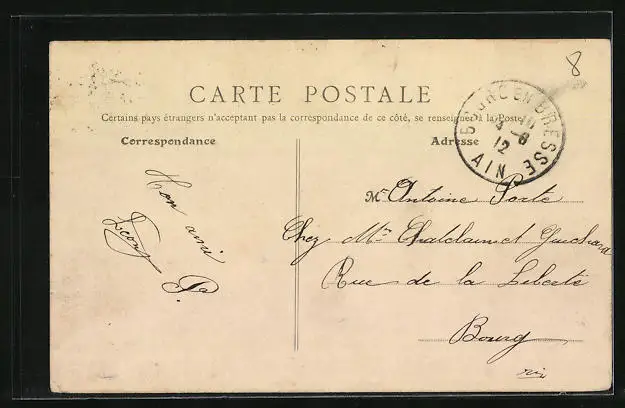 8
CARTE POSTALE
Certains pays étrangers n'acceptant pas la correspondance de ce côté, se renseigner à la Poste
Correspondance
Adresse
BOURG EN BRESSE
12
AIN
Mr Antoine Porte
Chez Mrs Chatelain et Guichard
Rue de la Liberté
Bourg
Ton ami
P.